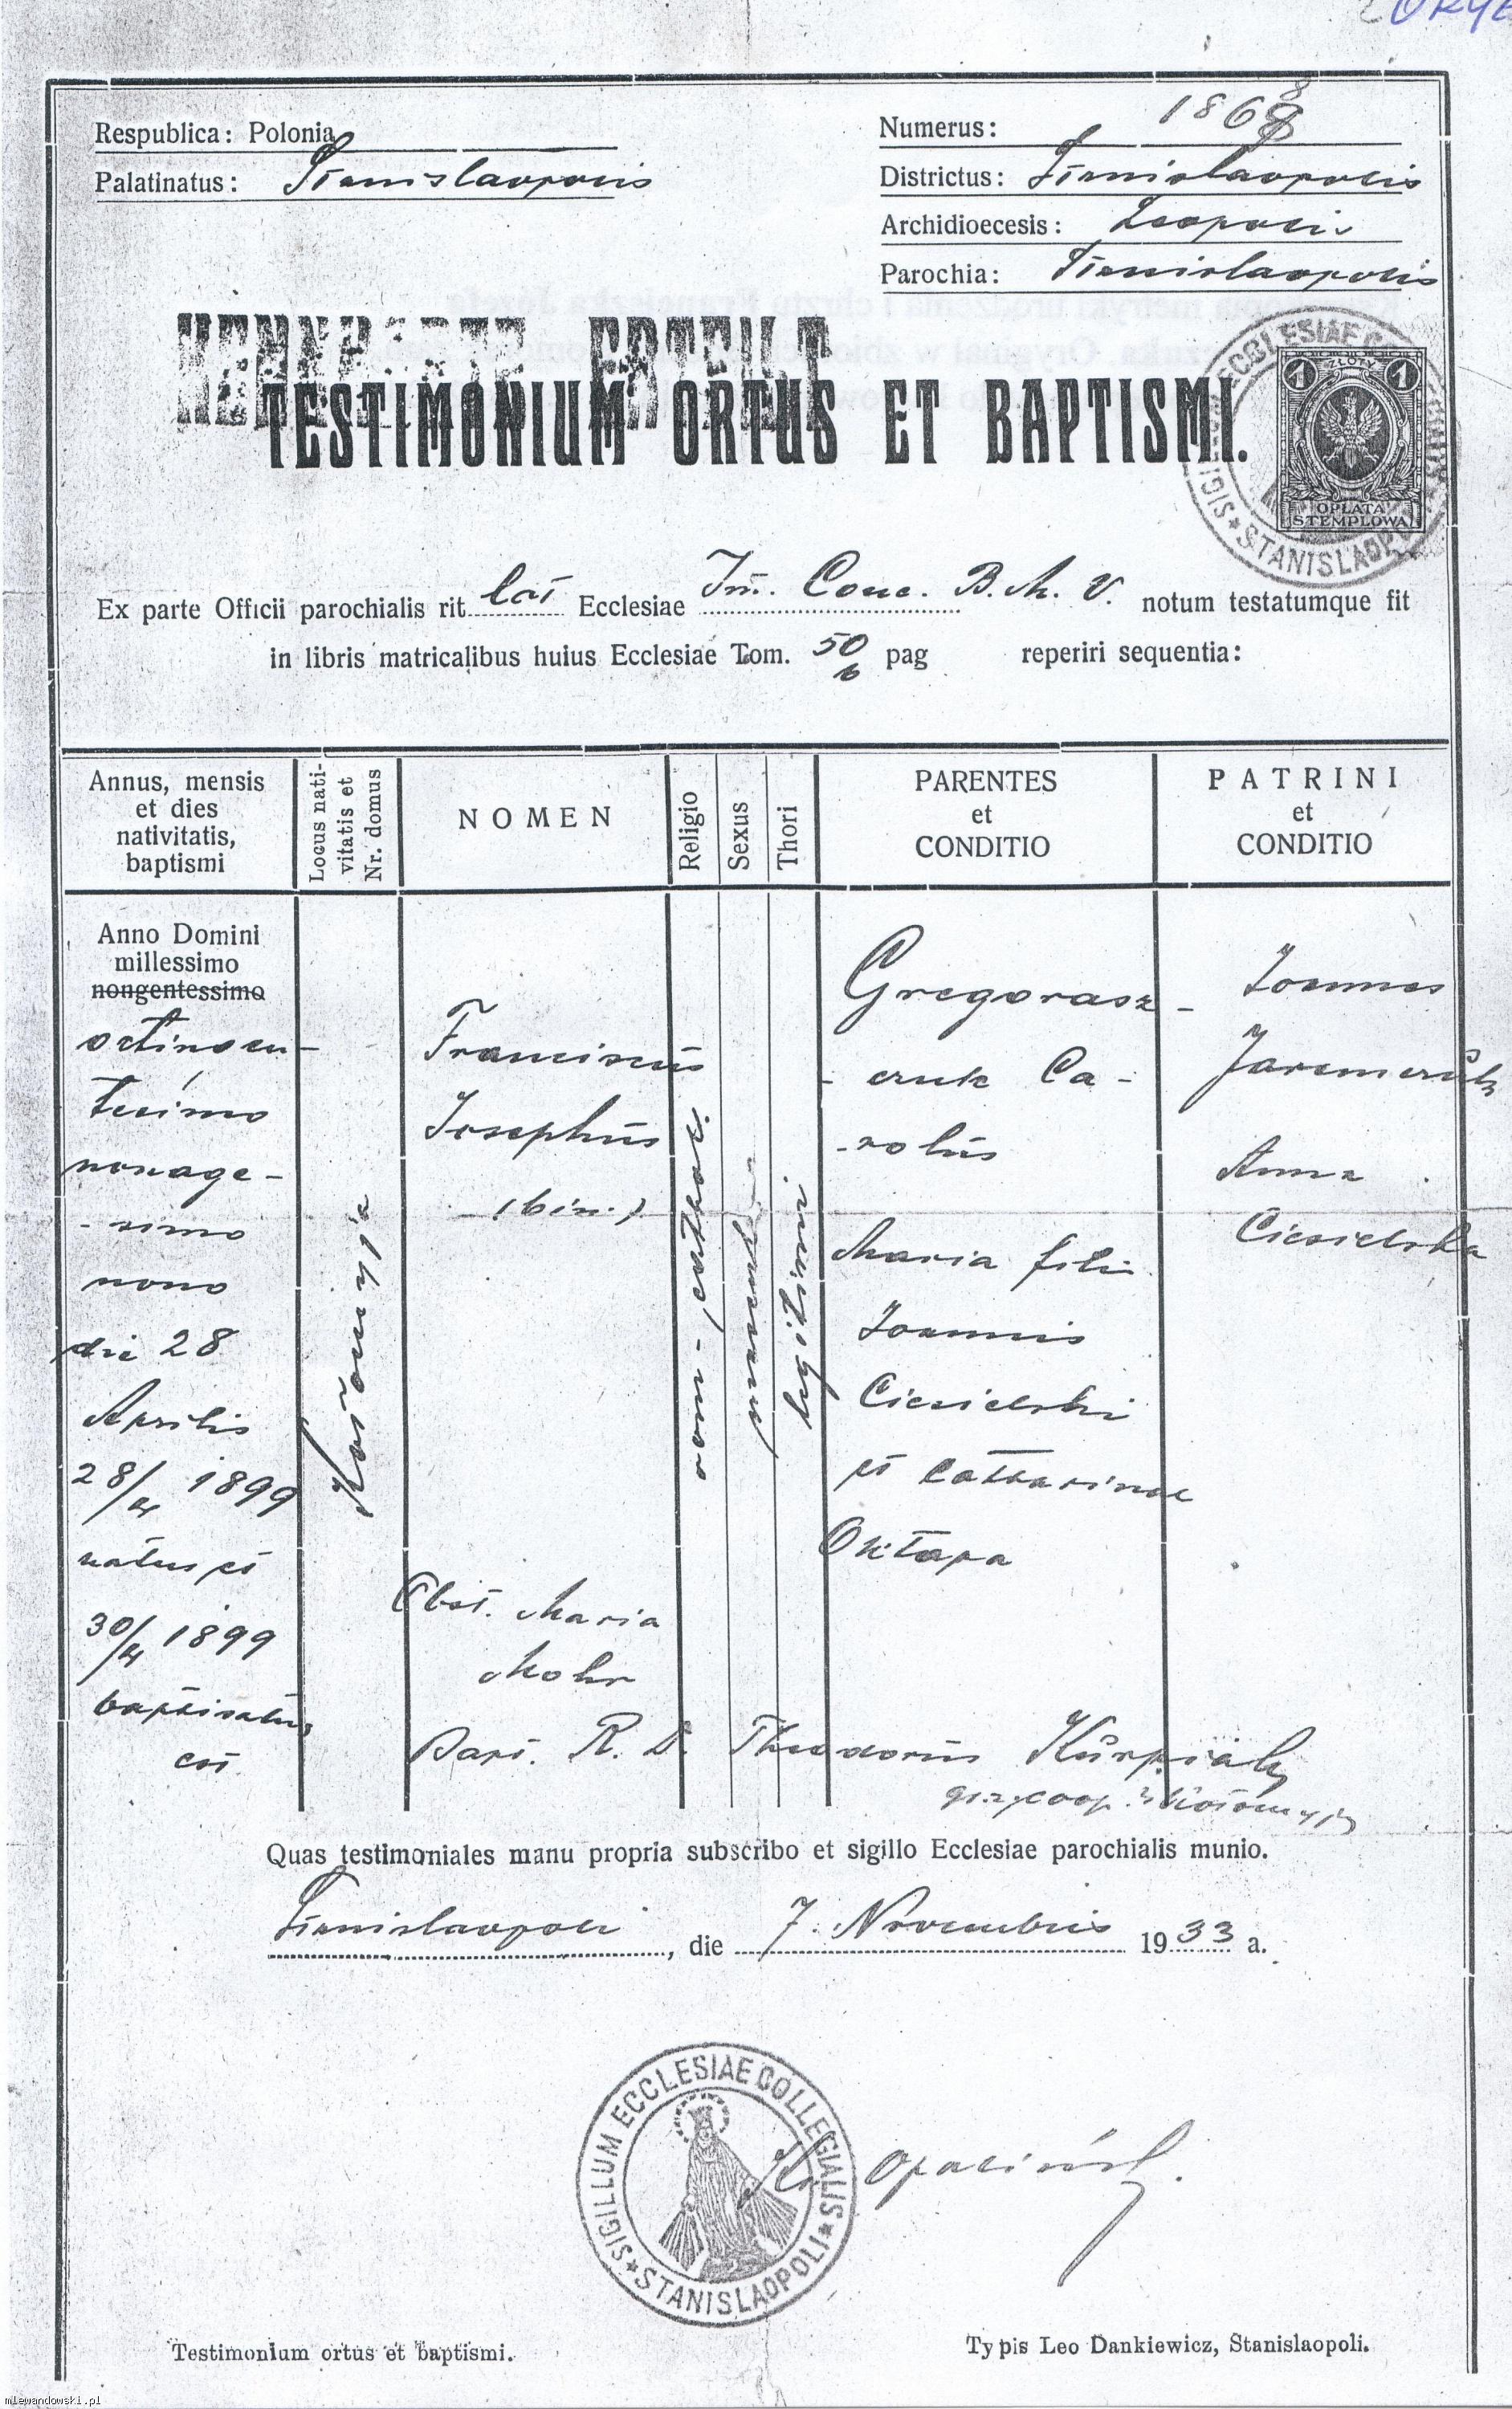 Respublica: Polonia
Palatinatus: Stanislaopolis
Numerus: 1868
Districtus: Stanislaopolis
Archidioecesis: Leopolis
Parochia: Stanislaopolis
KENNKARTE ERTEILT
TESTIMONIUM ORTUS ET BAPTISMI.
1 ZŁOTY 1
OPŁATA
STEMPLOWA
Ex parte Officii parochialis rit lat Ecclesiae Im. Conc. B. M. V. notum testatumque fit
in libris matricalibus huius Ecclesiae Tom. 50/6 pag reperiri sequentia:
Annus, mensis
et dies
nativitatis,
baptismi
Locus nati-
vitatis et
Nr. domus
NOMEN
Religio
Sexus
Thori
PARENTES
et
CONDITIO
PATRINI
et
CONDITIO
Anno Domini
millessimo
nongentessimo
octingen-
tesimo
nonage-
-simo
nono
die 28
Aprilis
28/4 1899
natus et
30/4 1899
baptisatus
est
Kołomyja
Franciscus
Josephus
(bin.)
Obst. Maria
Mohr
rom-cathol.
legitimi
Gregorasz-
-czuk Ca-
-rolus
Maria filia
Joannis
Ciesielski
et Catharinae
Oktapa
Joannes
Jaremczuk
Anna
Ciesielska
Bapt. R. D. Theodorus
coop. Kołomyja
Quas testimoniales manu propria subscribo et sigillo Ecclesiae parochialis munio.
Stanislaopoli, die 7. Novembris 1933 a.
SIGILLUM ECCLESIAE COLLEGIALIS
STANISLAOPOLI
Testimonium ortus et baptismi.
Typis Leo Dankiewicz, Stanislaopoli.
mlewandowski.pl